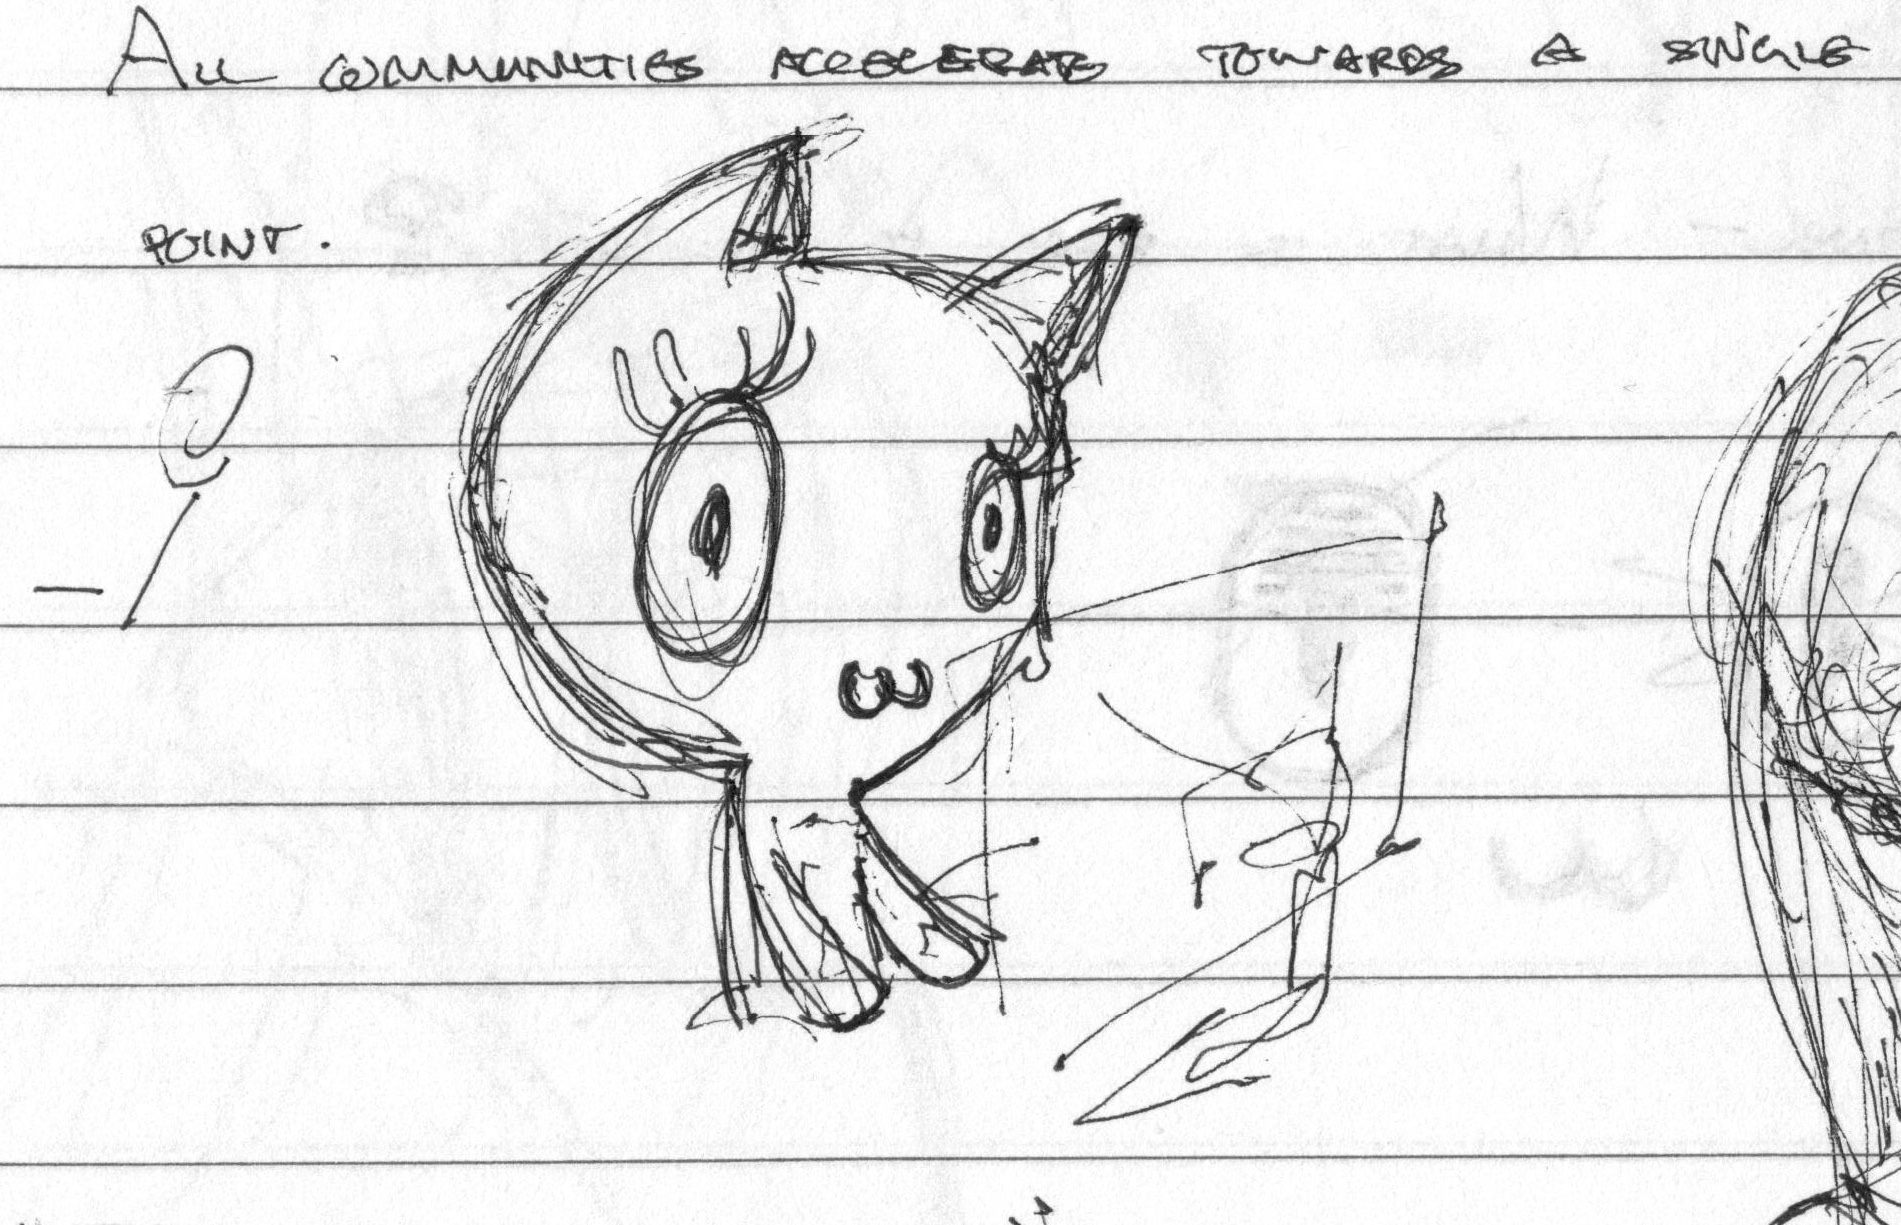 All communities accelerate towards a single
point.